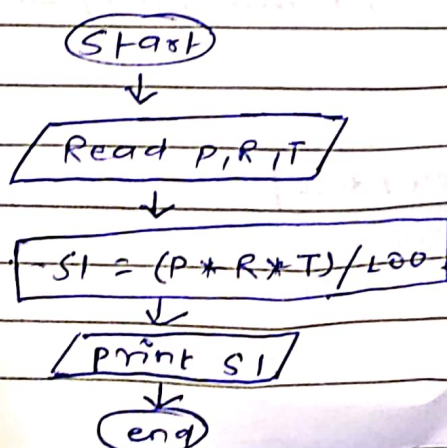 Start
Read P, R, T
SI = (P * R * T) / 100
print SI
end